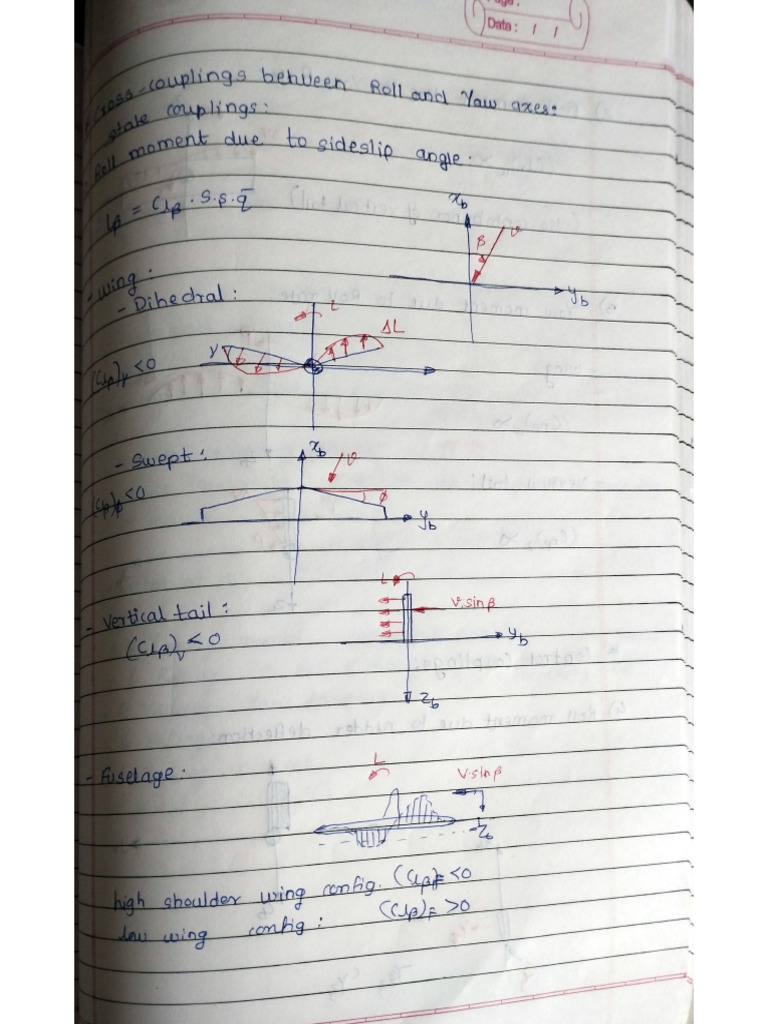 Date: / /
Cross-couplings between Roll and Yaw axes:
state couplings:
Roll moment due to sideslip angle.
lβ = Clβ · S.s.q̄
xb
β
v
yb
- Wing:
- Dihedral:
L
ΔL
γ
(Clβ)γ <0
- Swept:
xb
v
(Clβ)ϕ <0
ϕ
yb
L
- Vertical tail:
V.sinβ
(Clβ)V <0
yb
zb
- Fuselage:
L
V.sinβ
zb
high shoulder wing config. (Clβ)F <0
low wing config: (Clβ)F >0